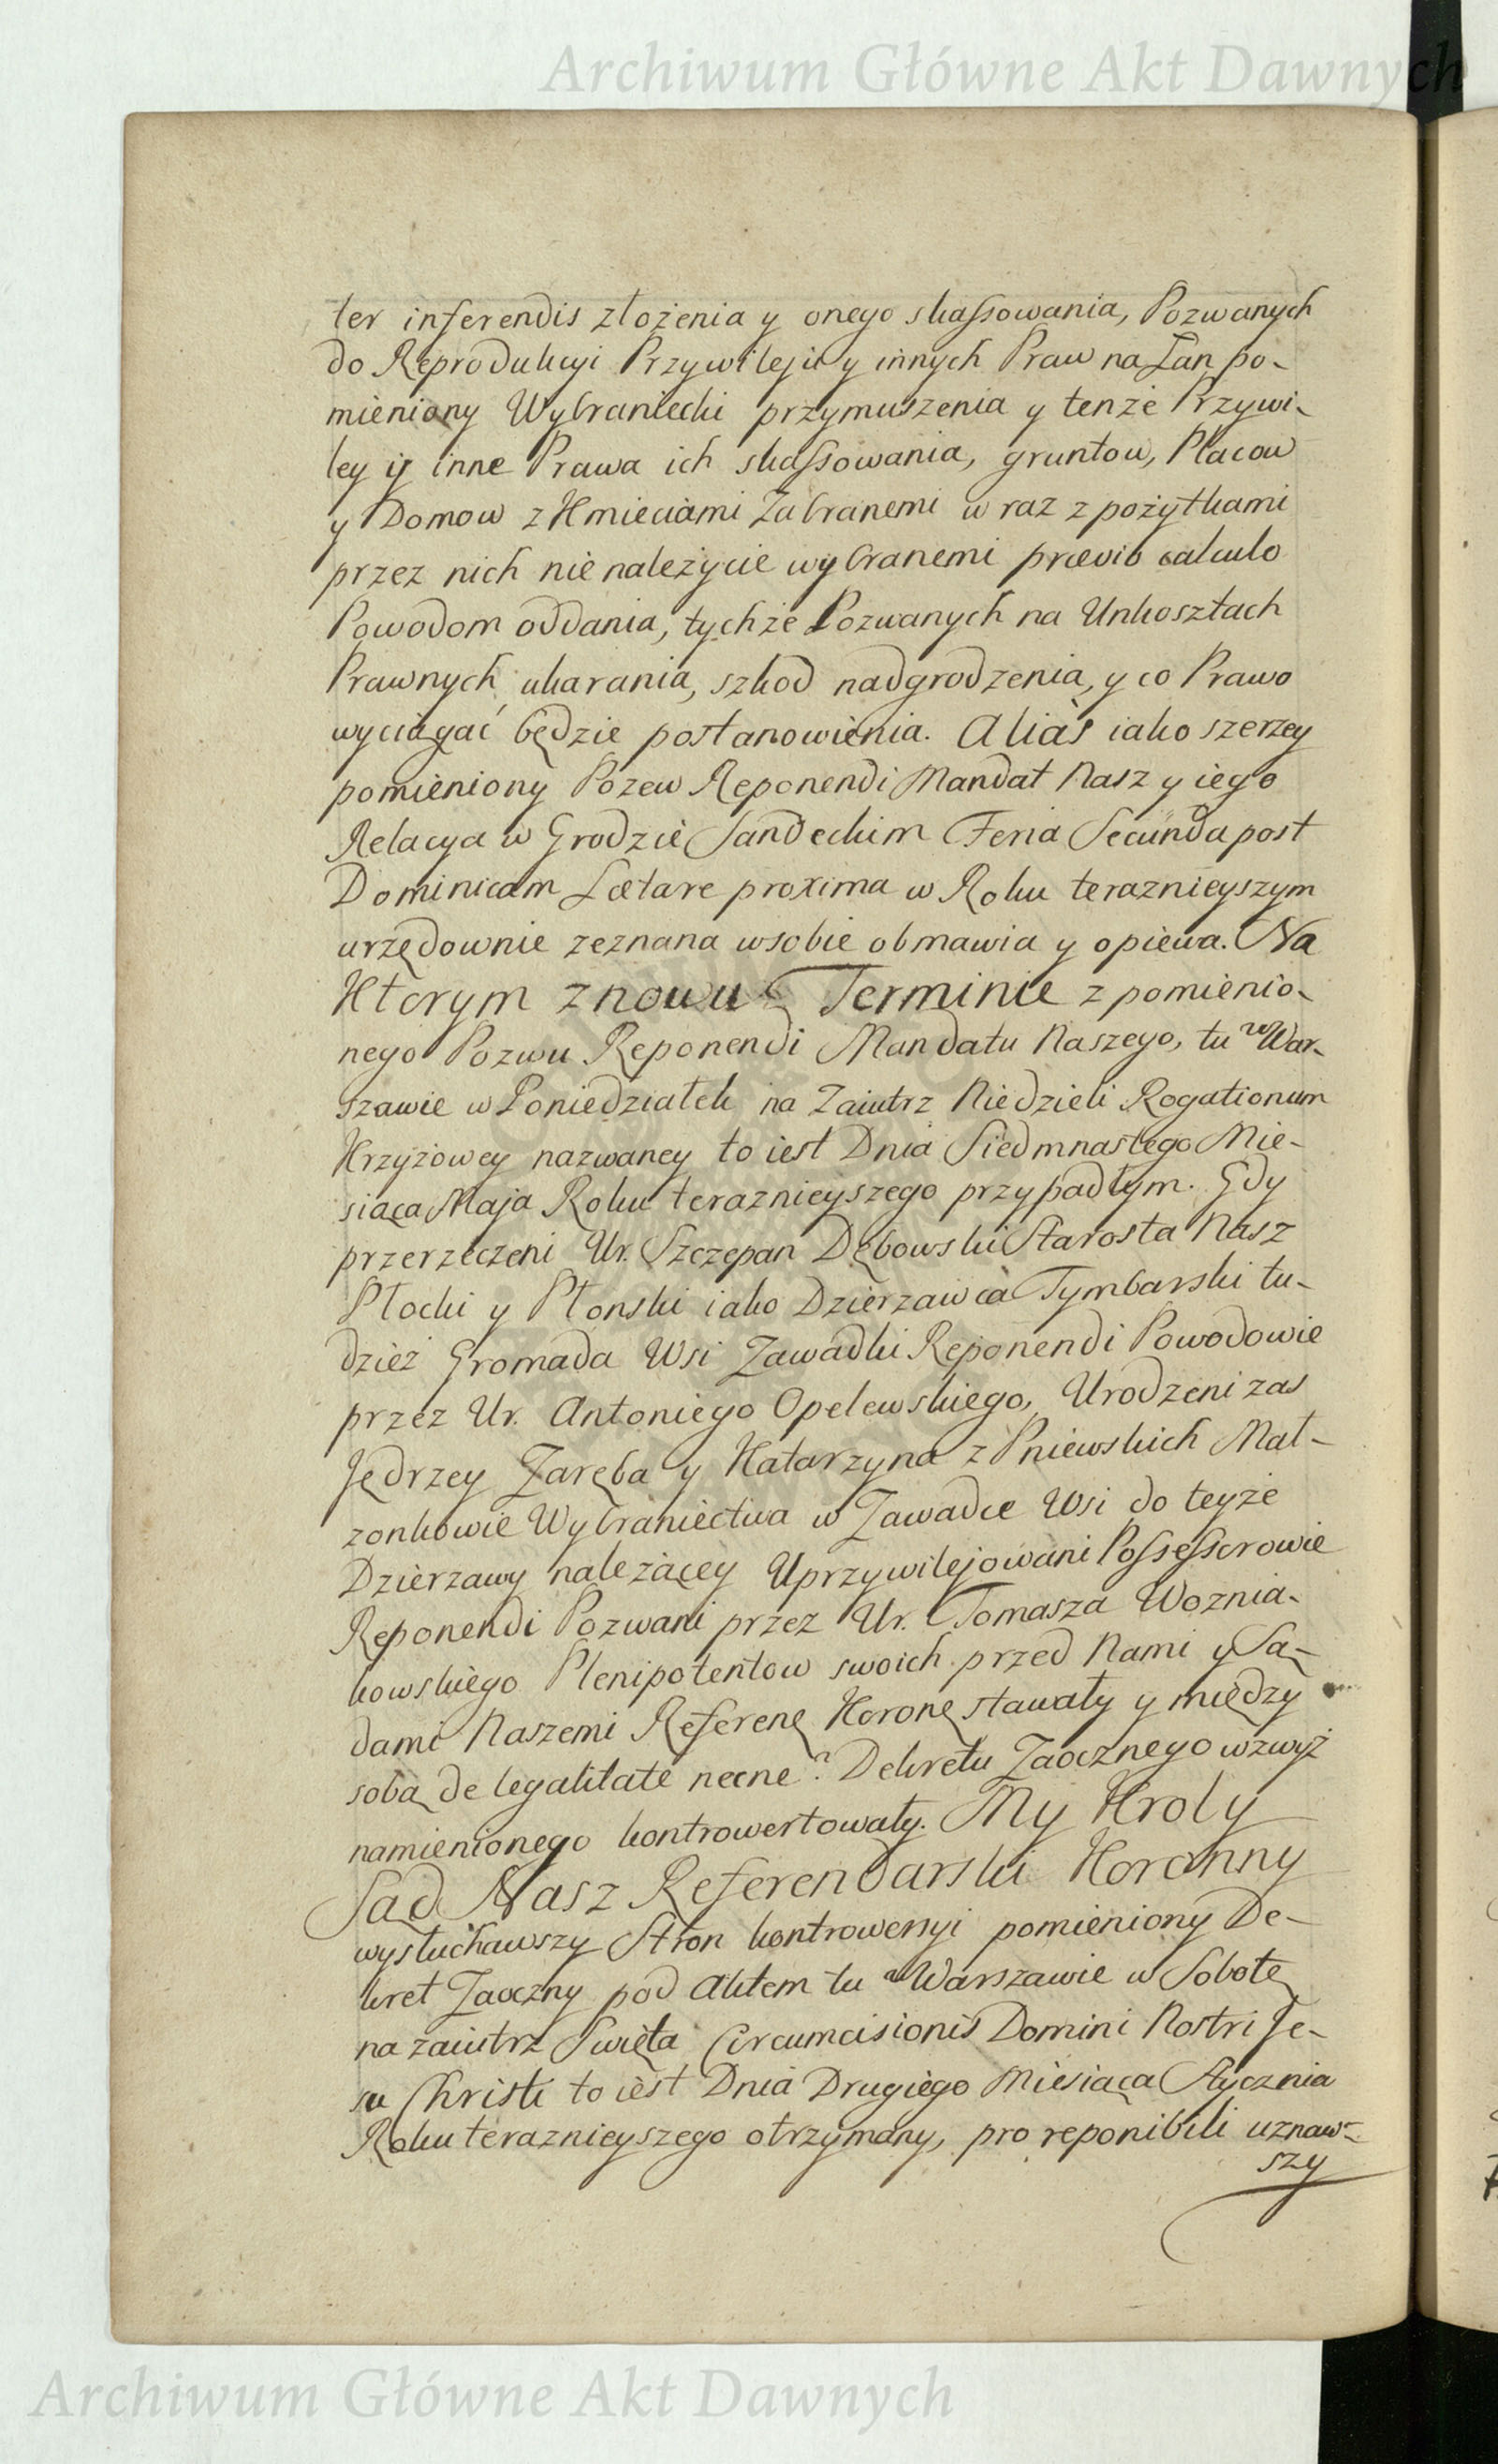 Archiwum Główne Akt Dawnych
ter inferendis złożenia y onego skassowania, Pozwanych
do Reprodukcyi Przywileju y innych Praw na Łan po-
mieniony Wybraniecki przymuszenia y tenże Przywi-
ley y inne Prawa ich skassowania, gruntow, Placow
y Domow z Kmieciami Zabranemi w raz z pożytkami
przez nich nienależycie wybranemi prævio calculo
Powodom oddania, tychże Pozwanych na Unkosztach
Prawnych ukarania, szkod nadgrodzenia, y co Prawo
wyciągać będzie postanowienia. Alias iako szerzey
pomieniony Pozew Reponendi Mandat Nasz y iego
Relacya w Grodzie Sandeckim Feria Secunda post
Dominicam Lætare proxima w Roku teraznieyszym
urzędownie zeznana wsobie obmawia y opiewa. Na
Ktorym znowu Terminie z pomienio-
nego Pozwu Reponendi Mandatu Naszego, tu w War-
szawie w Poniedziałek na Zaiutrz Niedzieli Rogationum
Krzyżowey nazwaney to iest Dnia Siedmnastego Mie-
siąca Maja Roku teraznieyszego przypadłym. Gdy
przerzeczeni Ur. Szczepan Dębowski Starosta Nasz
Płocki y Płonski iako Dzierzawca Tymbarski tu-
dzież Gromada Wsi Zawadki Reponendi Powodowie
przez Ur. Antoniego Opelewskiego, Urodzeni zas
Jędrzey Zaręba y Katarzyna z Pniewskich Mał-
zonkowie Wybraniectwa w Zawadce Wsi do teyże
Dzierzawy należącey Uprzywilejowani Possessorowie
Reponendi Pozwani przez Ur. Tomasza Woznia-
kowskiego Plenipotentow swoich przed Nami y Są-
dami Naszemi Referenę Koronę stawały y między
sobą de legalitate necne? Dekretu Zaocznego wzwyż
namienionego kontrowertowały. My Kroly
Sąd Nasz Referendarski Koronny
wysłuchawszy Stron kontrowersyi pomieniony De-
kret Zaoczny pod Aktem tu w Warszawie w Sobotę
na zaiutrz Swięta Circumcisionis Domini Nostri Je-
su Christi to iest Dnia Drugiego Miesiąca Stycznia
Roku teraznieyszego otrzymany, pro reponibili uznaw-
szy
Archiwum Główne Akt Dawnych